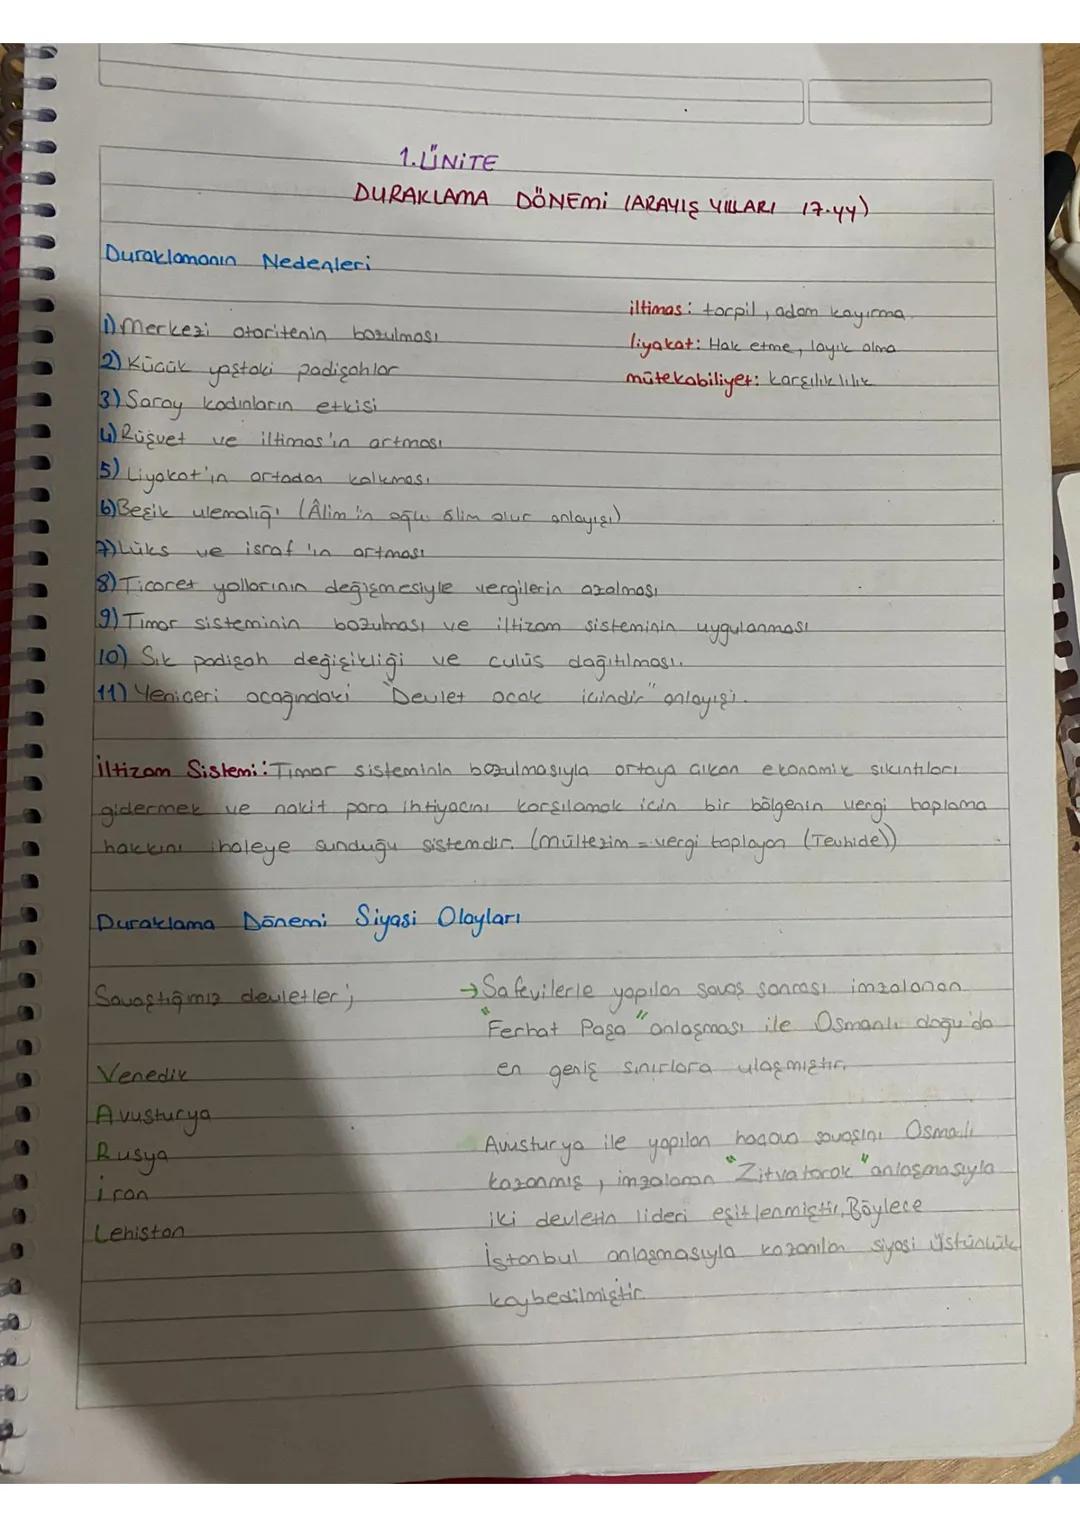 1.ÜNİTE
DURAKLAMA DÖNEMİ (ARAYIŞ YILLARI 17.yy)
Duraklamanın Nedenleri
iltimas: torpil, adam kayırma
liyakat: Hak etme, layık olma
mütekabiliyet: karşılıklılık
1) Merkezi otoritenin bozulması
2) Küçük yaştaki padişahlar
3) Saray kadınların etkisi
4) Rüşvet ve iltimas'ın artması
5) Liyakat'ın ortadan kalkması
6) Beşik ulemalığı (Âlim'in oğlu âlim olur anlayışı)
7) Lüks ve israf'ın artması
8) Ticaret yollarının değişmesiyle vergilerin azalması
9) Tımar sisteminin bozulması ve iltizam sisteminin uygulanması
10) Sık padişah değişikliği ve culüs dağıtılması.
11) Yeniçeri ocağındaki "Devlet ocak içindir" anlayışı.
İltizam Sistemi: Tımar sisteminin bozulmasıyla ortaya çıkan ekonomik sıkıntıları
gidermek ve nakit para ihtiyacını karşılamak için bir bölgenin vergi toplama
hakkını ihaleye sunduğu sistemdir. (mültezim = vergi toplayan (Tevhide))
Duraklama Dönemi Siyasi Olayları
Savaştığımız devletler;
Venedik
Avusturya
Rusya
İran
Lehistan
→ Safevilerle yapılan savaş sonrası imzalanan
"Ferhat Paşa" anlaşması ile Osmanlı doğu'da
en geniş sınırlara ulaşmıştır.
Avusturya ile yapılan haçova savaşını Osmanlı
kazanmış, imzalanan "Zitvatorok" anlaşmasıyla
iki devletin lideri eşitlenmiştir. Böylece
İstanbul anlaşmasıyla kazanılan siyasi üstünlük
kaybedilmiştir.